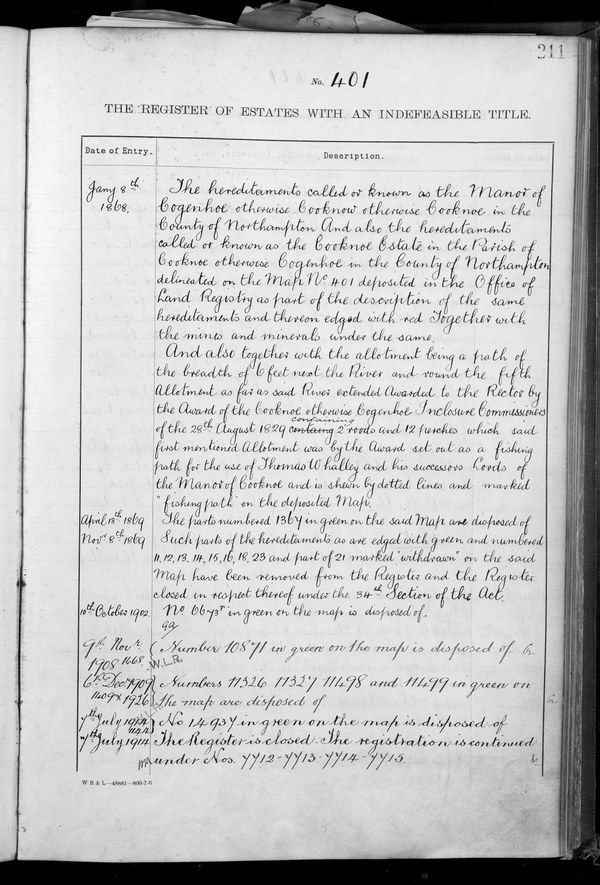 211
No. 401
THE REGISTER OF ESTATES WITH AN INDEFEASIBLE TITLE.
Date of Entry. Description.
Jany 8th 1868. The hereditaments called or known as the Manor of
Cogenhoe otherwise Cooknow otherwise Cooknoe in the
County of Northampton And also the hereditaments
called or known as the Cooknoe Estate in the Parish of
Cooknoe otherwise Cogenhoe in the County of Northampton
delineated on the Map No 401 deposited in the Office of
Land Registry as part of the description of the same
hereditaments and thereon edged with red Together with
the mines and minerals under the same.
And also together with the allotment being a path of
the breadth of 6 feet next the River and round the fifth
Allotment as far as said River extended Awarded to the Rector by
the Award of the Cooknoe otherwise Cogenhoe Inclosure Commissioners
containing
of the 28th August 1829 containg 2 roods and 12 perches which said
first mentioned Allotment was by the Award set out as a fishing
path for the use of Thomas Whalley and his successors Lords of
the Manor of Cooknoe and is shewn by dotted lines and marked
"fishing path" on the deposited Map.
April 13th 1869 The parts numbered 1367 in green on the said Map are disposed of
Novr 8th 1869 Such parts of the hereditaments as are edged with green and numbered
11, 12, 13, 14, 15, 16, 18, 23 and part of 21 marked "withdrawn" on the said
Map have been removed from the Register and the Register
closed in respect thereof under the 34th Section of the Act.
10th October 1902 No 6673 in green on the map is disposed of.
9th Novr Number 10871 in green on the map is disposed of
1908 1668 W.L.R.
6th Decr 1909 Numbers 11326 11327 11498 and 11499 in green on
the map are disposed of
7th July 1914 No 14937 in green on the map is disposed of
7th July 1914 The Register is closed. The registration is continued
under Nos. 7712-7713-7714-7715.
W B & L—48881—800-7-6